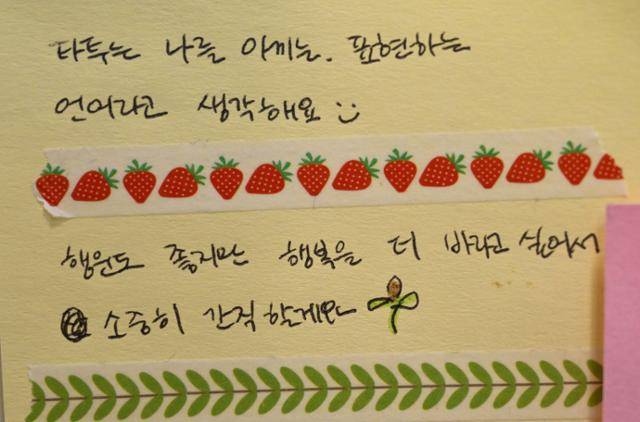 타투는 나를 아끼는. 표현하는
언어라고 생각해요 :)
행운도 좋지만 행복을 더 바라고 싶어서
소중히 간직할게요